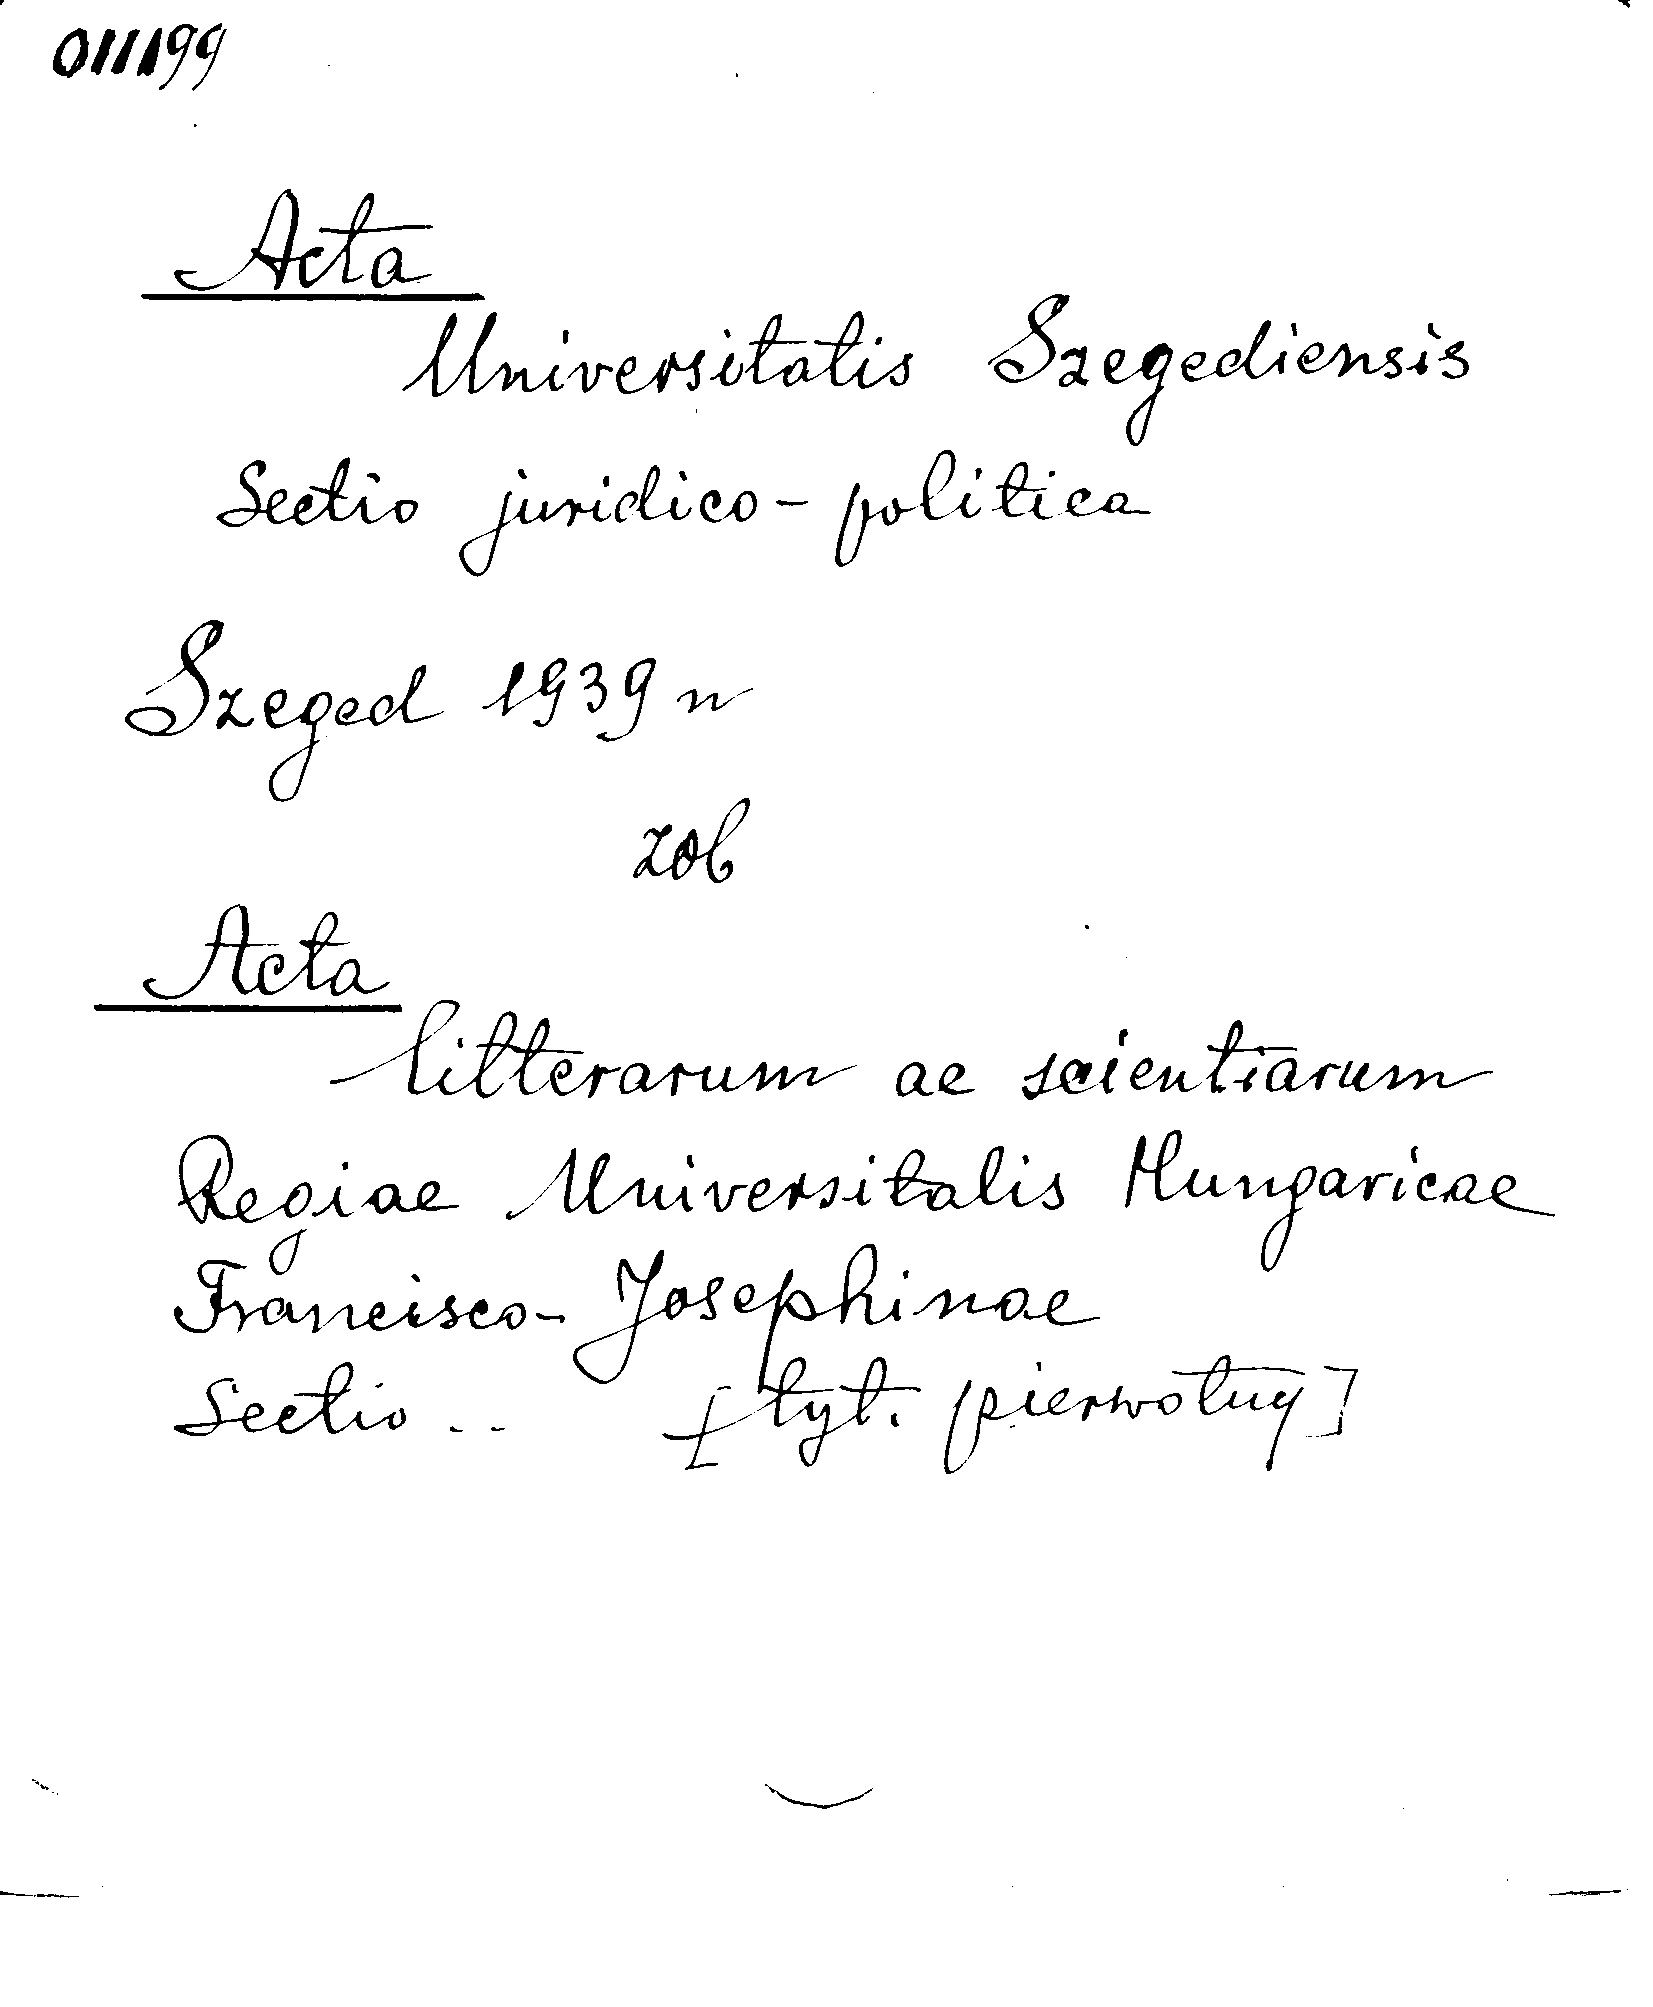 011199
Acta
Universitatis Szegediensis
Sectio juridico-politica
Szeged 1939 n
zob
Acta
litterarum ac scientiarum
Regiae Universitatis Hungaricae
Francisco-Josephinae
Sectio .. [tyt. pierwotny]